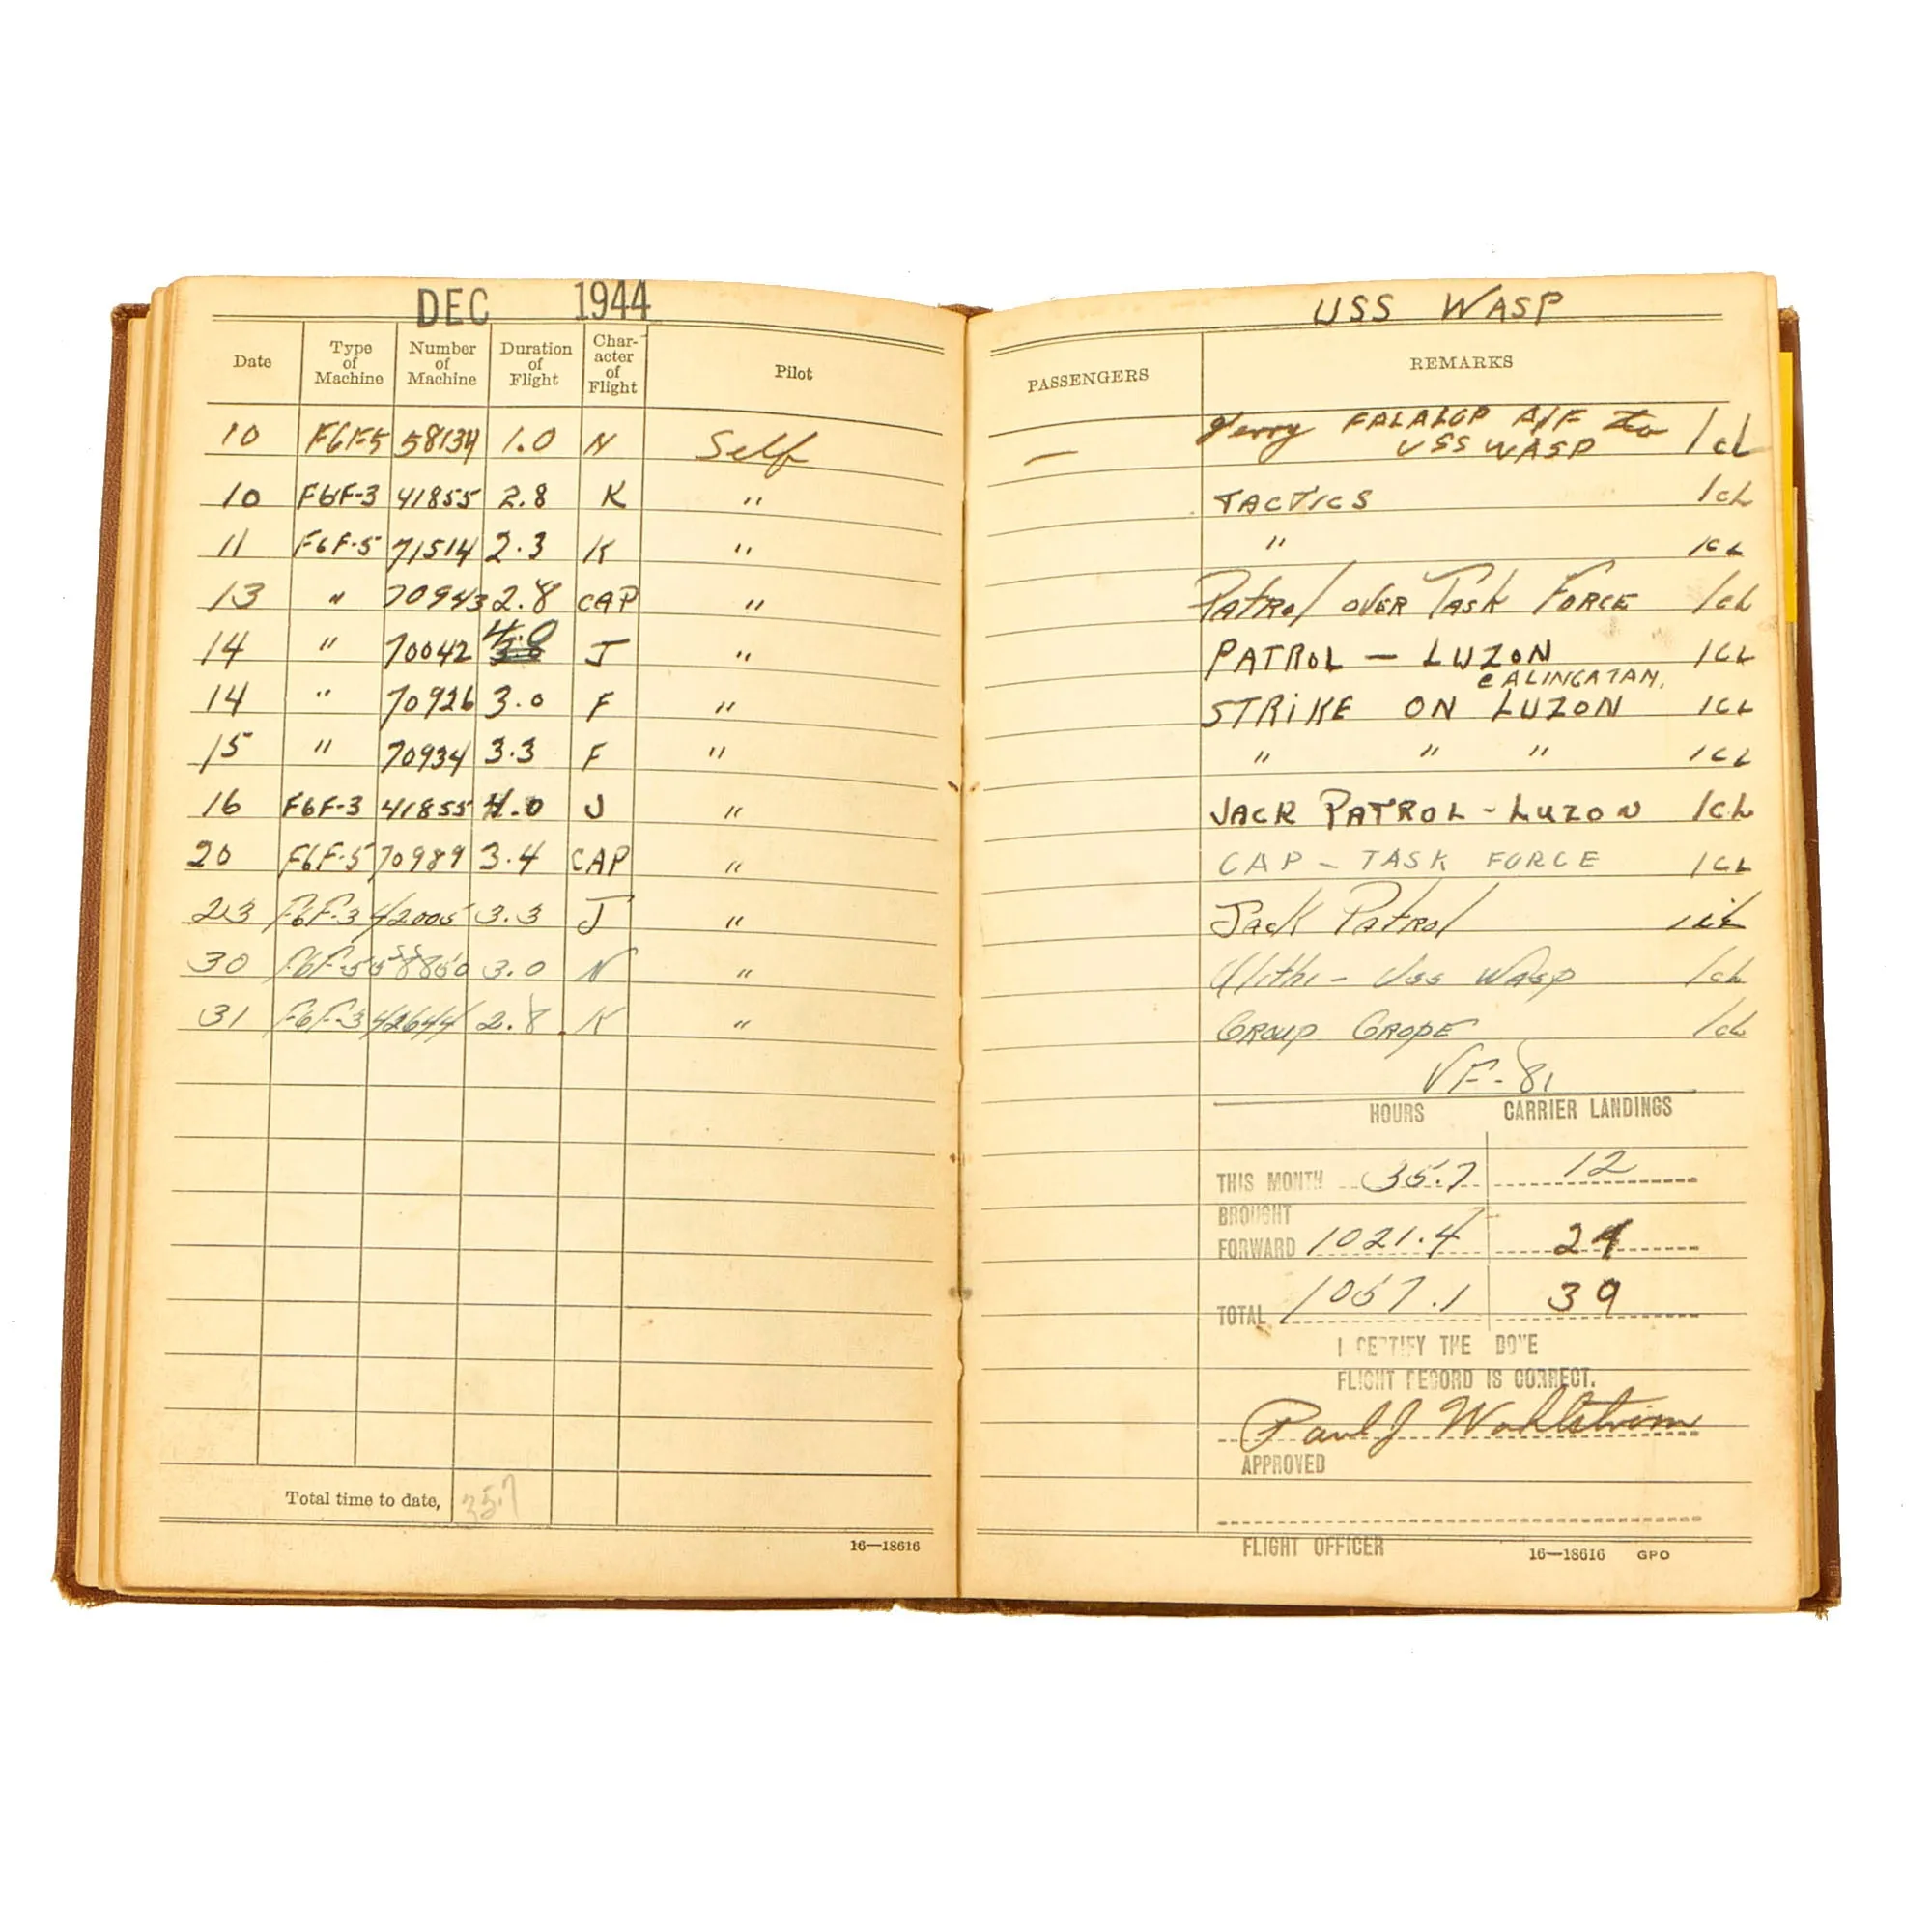 DEC 1944
Date Type of Machine Number of Machine Duration of Flight Char-acter of Flight Pilot
10 F6F-5 58134 1.0 N Self
10 F6F-3 41855 2.8 K "
11 F6F-5 71514 2.3 K "
13 " 70943 2.8 CAP "
14 " 70042 4.0 J "
14 " 70926 3.0 F "
15 " 70934 3.3 F "
16 F6F-3 41855 4.0 J "
20 F6F-5 70989 3.4 CAP "
23 F6F-3 42005 3.3 J "
30 F6F-5 3.0 N "
31 F6F-3 42644 2.8 K "
Total time to date, 35.7
16—18616
USS WASP
PASSENGERS REMARKS
— Ferry FALALOP A/F to 1cL
USS WASP
TACTICS 1cL
" 1CL
PATROL OVER TASK FORCE 1cL
PATROL — LUZON 1CL
STRIKE ON LUZON 1CL
" " " 1CL
JACK PATROL - LUZON 1CL
CAP - TASK FORCE 1CL
Jack Patrol
Ulithi - USS WASP 1cL
GROUP GROPE 1cL
VF-81
HOURS CARRIER LANDINGS
THIS MONTH 35.7 12
BROUGHT
FORWARD 1021.4
TOTAL 1057.1 39
I CERTIFY THE BOVE
FLIGHT RECORD IS CORRECT.
Paul J Wahlstrom
APPROVED
FLIGHT OFFICER
16—18616 GPO